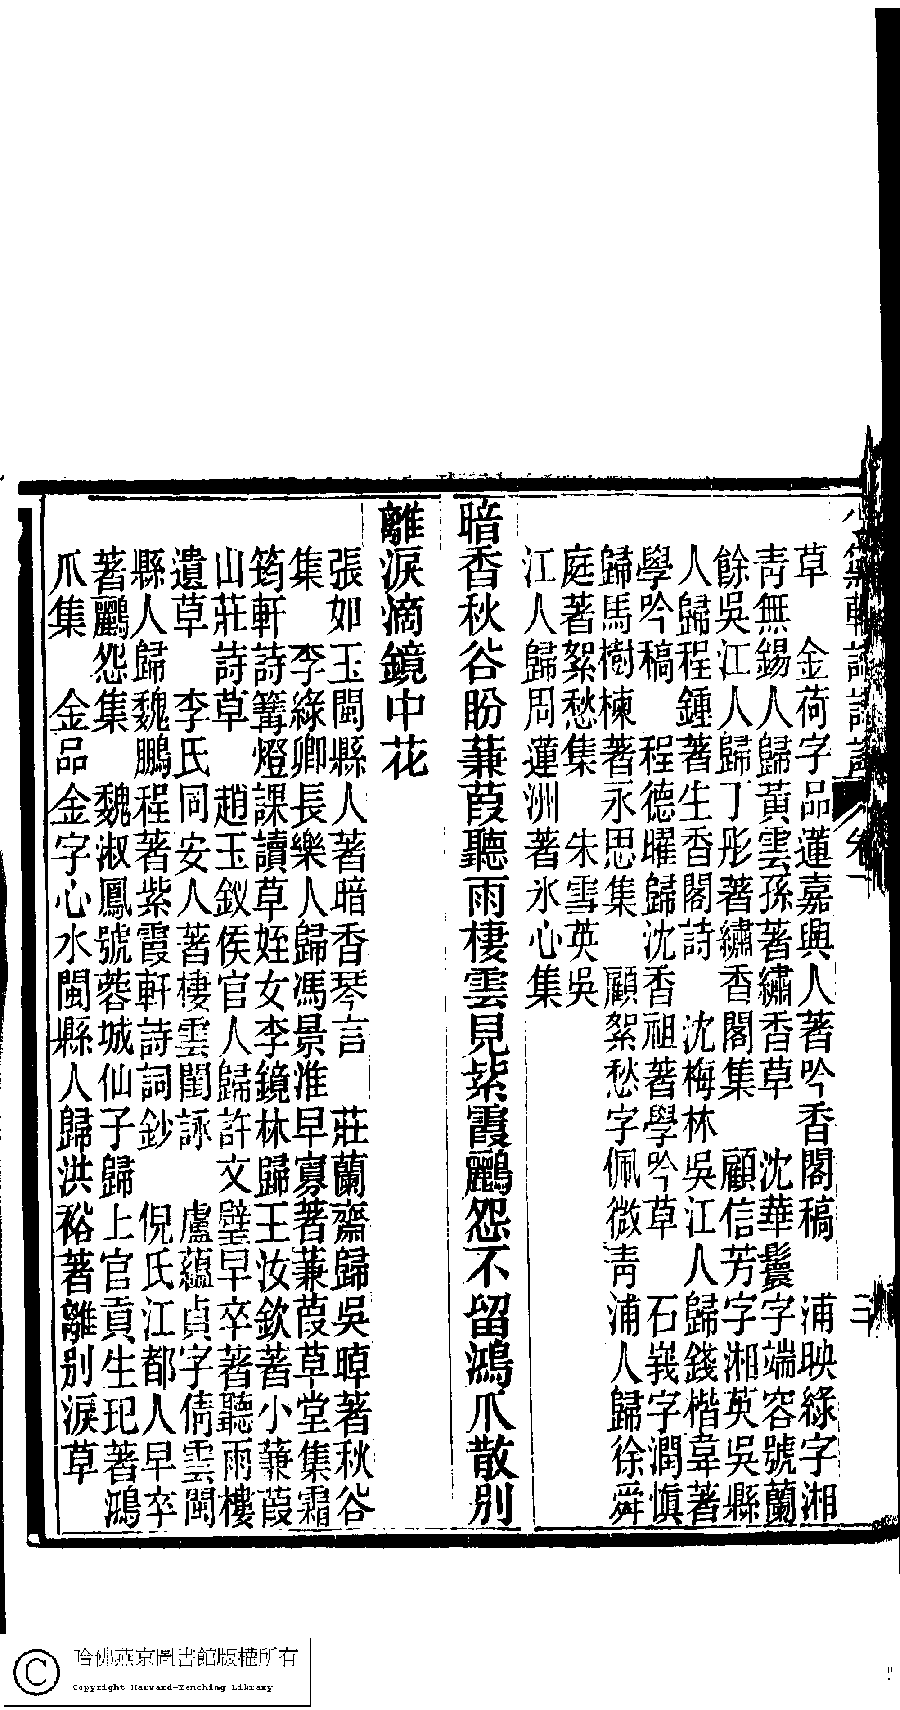 草　金荷字品蓮嘉興人著吟香閣稿　浦映綠字湘
青無錫人歸黃雲孫著繡香草　沈華鬟字端容號蘭
餘吳江人歸丁彤著繡香閣集　顧信芳字湘英吳縣
人歸程鍾著生香閣詩　沈梅林吳江人歸錢楷韋著
學吟稿　程德曜歸沈香祖著學吟草　石嶷字潤愼
歸馬樹楝著永思集　顧絮愁字佩微青浦人歸徐舜
庭著絮愁集　朱雪英吳
江人歸周蓮洲著氷心集
暗香秋谷盼蒹葭聽雨棲雲見紫霞鸝怨不留鴻爪散別
離淚滴鏡中花
張如玉閩縣人著暗香琴言　莊蘭齋歸吳晫著秋谷
集　李綠卿長樂人歸馮景淮早寡著蒹葭草堂集霜
筠軒詩篝燈課讀草姪女李鏡林歸王汝欽著小蒹葭
山莊詩草　趙玉釵侯官人歸許文璧早卒著聽雨樓
遺草　李氏同安人著棲雲閨詠　盧蘊貞字倩雲閩
縣人歸魏鵬程著紫霞軒詩詞鈔　倪氏江都人早卒
著鸝怨集　魏淑鳳號蓉城仙子歸上官貢生玘著鴻
爪集　金品金字心水閩縣人歸洪裕著離別淚草
哈佛燕京圖書館版權所有
Copyright Harvard-Yenching Library